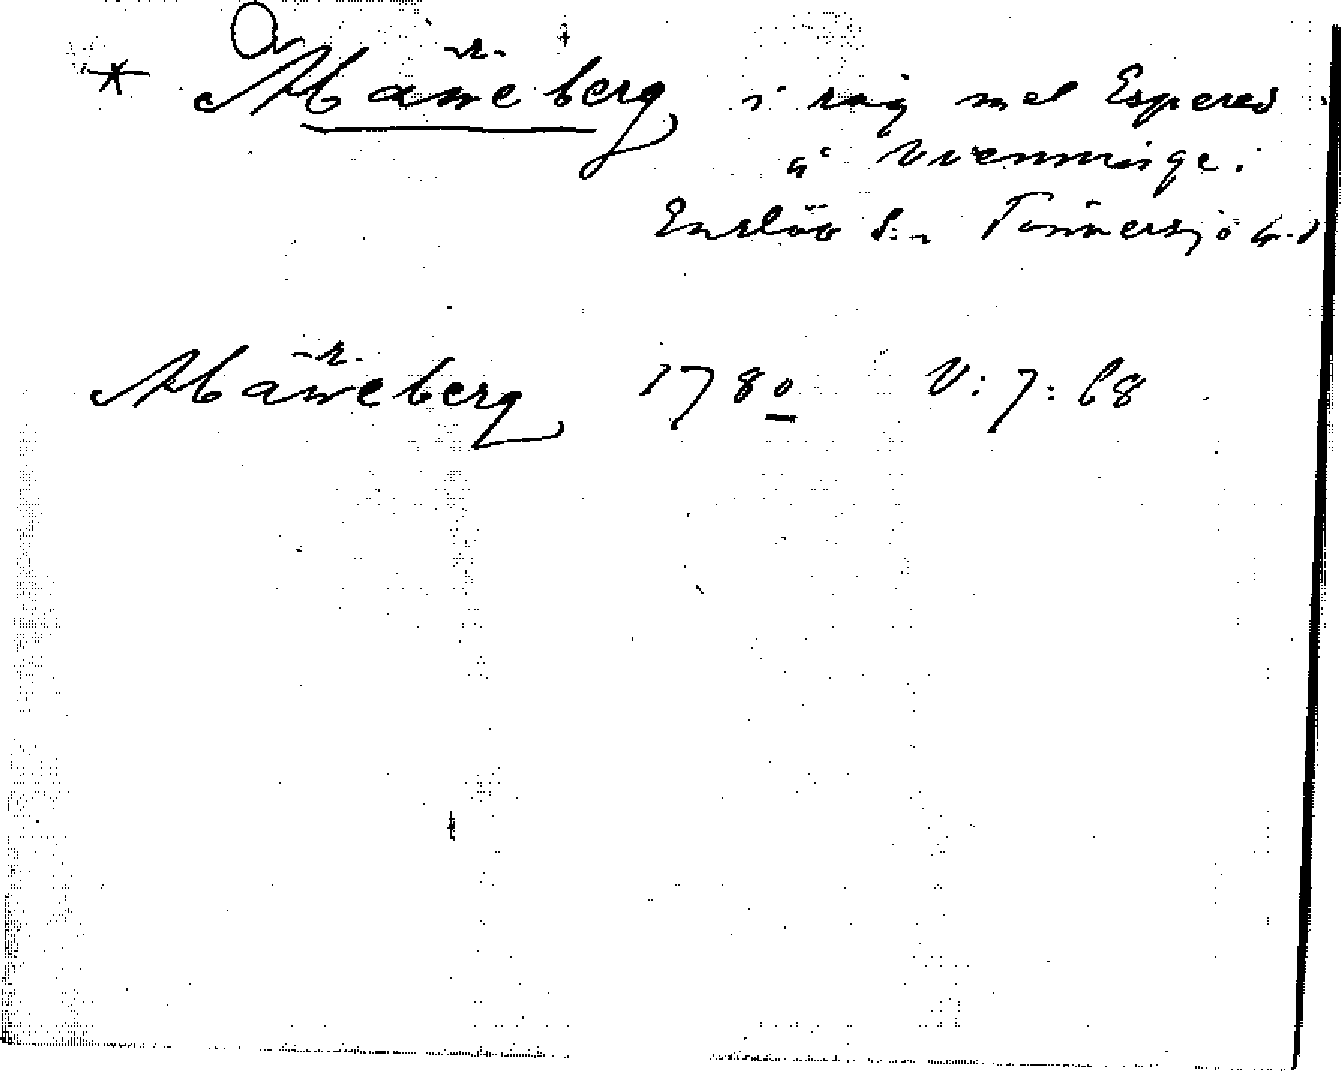 * Mäneberg i råg med Esered
å Vrenninge.
Enslöv s:n Tönnersjö h-d
Mäneberg 1780 V:7:68